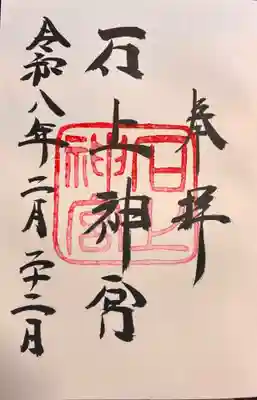 奉拝
石上神宮
令和八年二月二十二日
石上
神宮